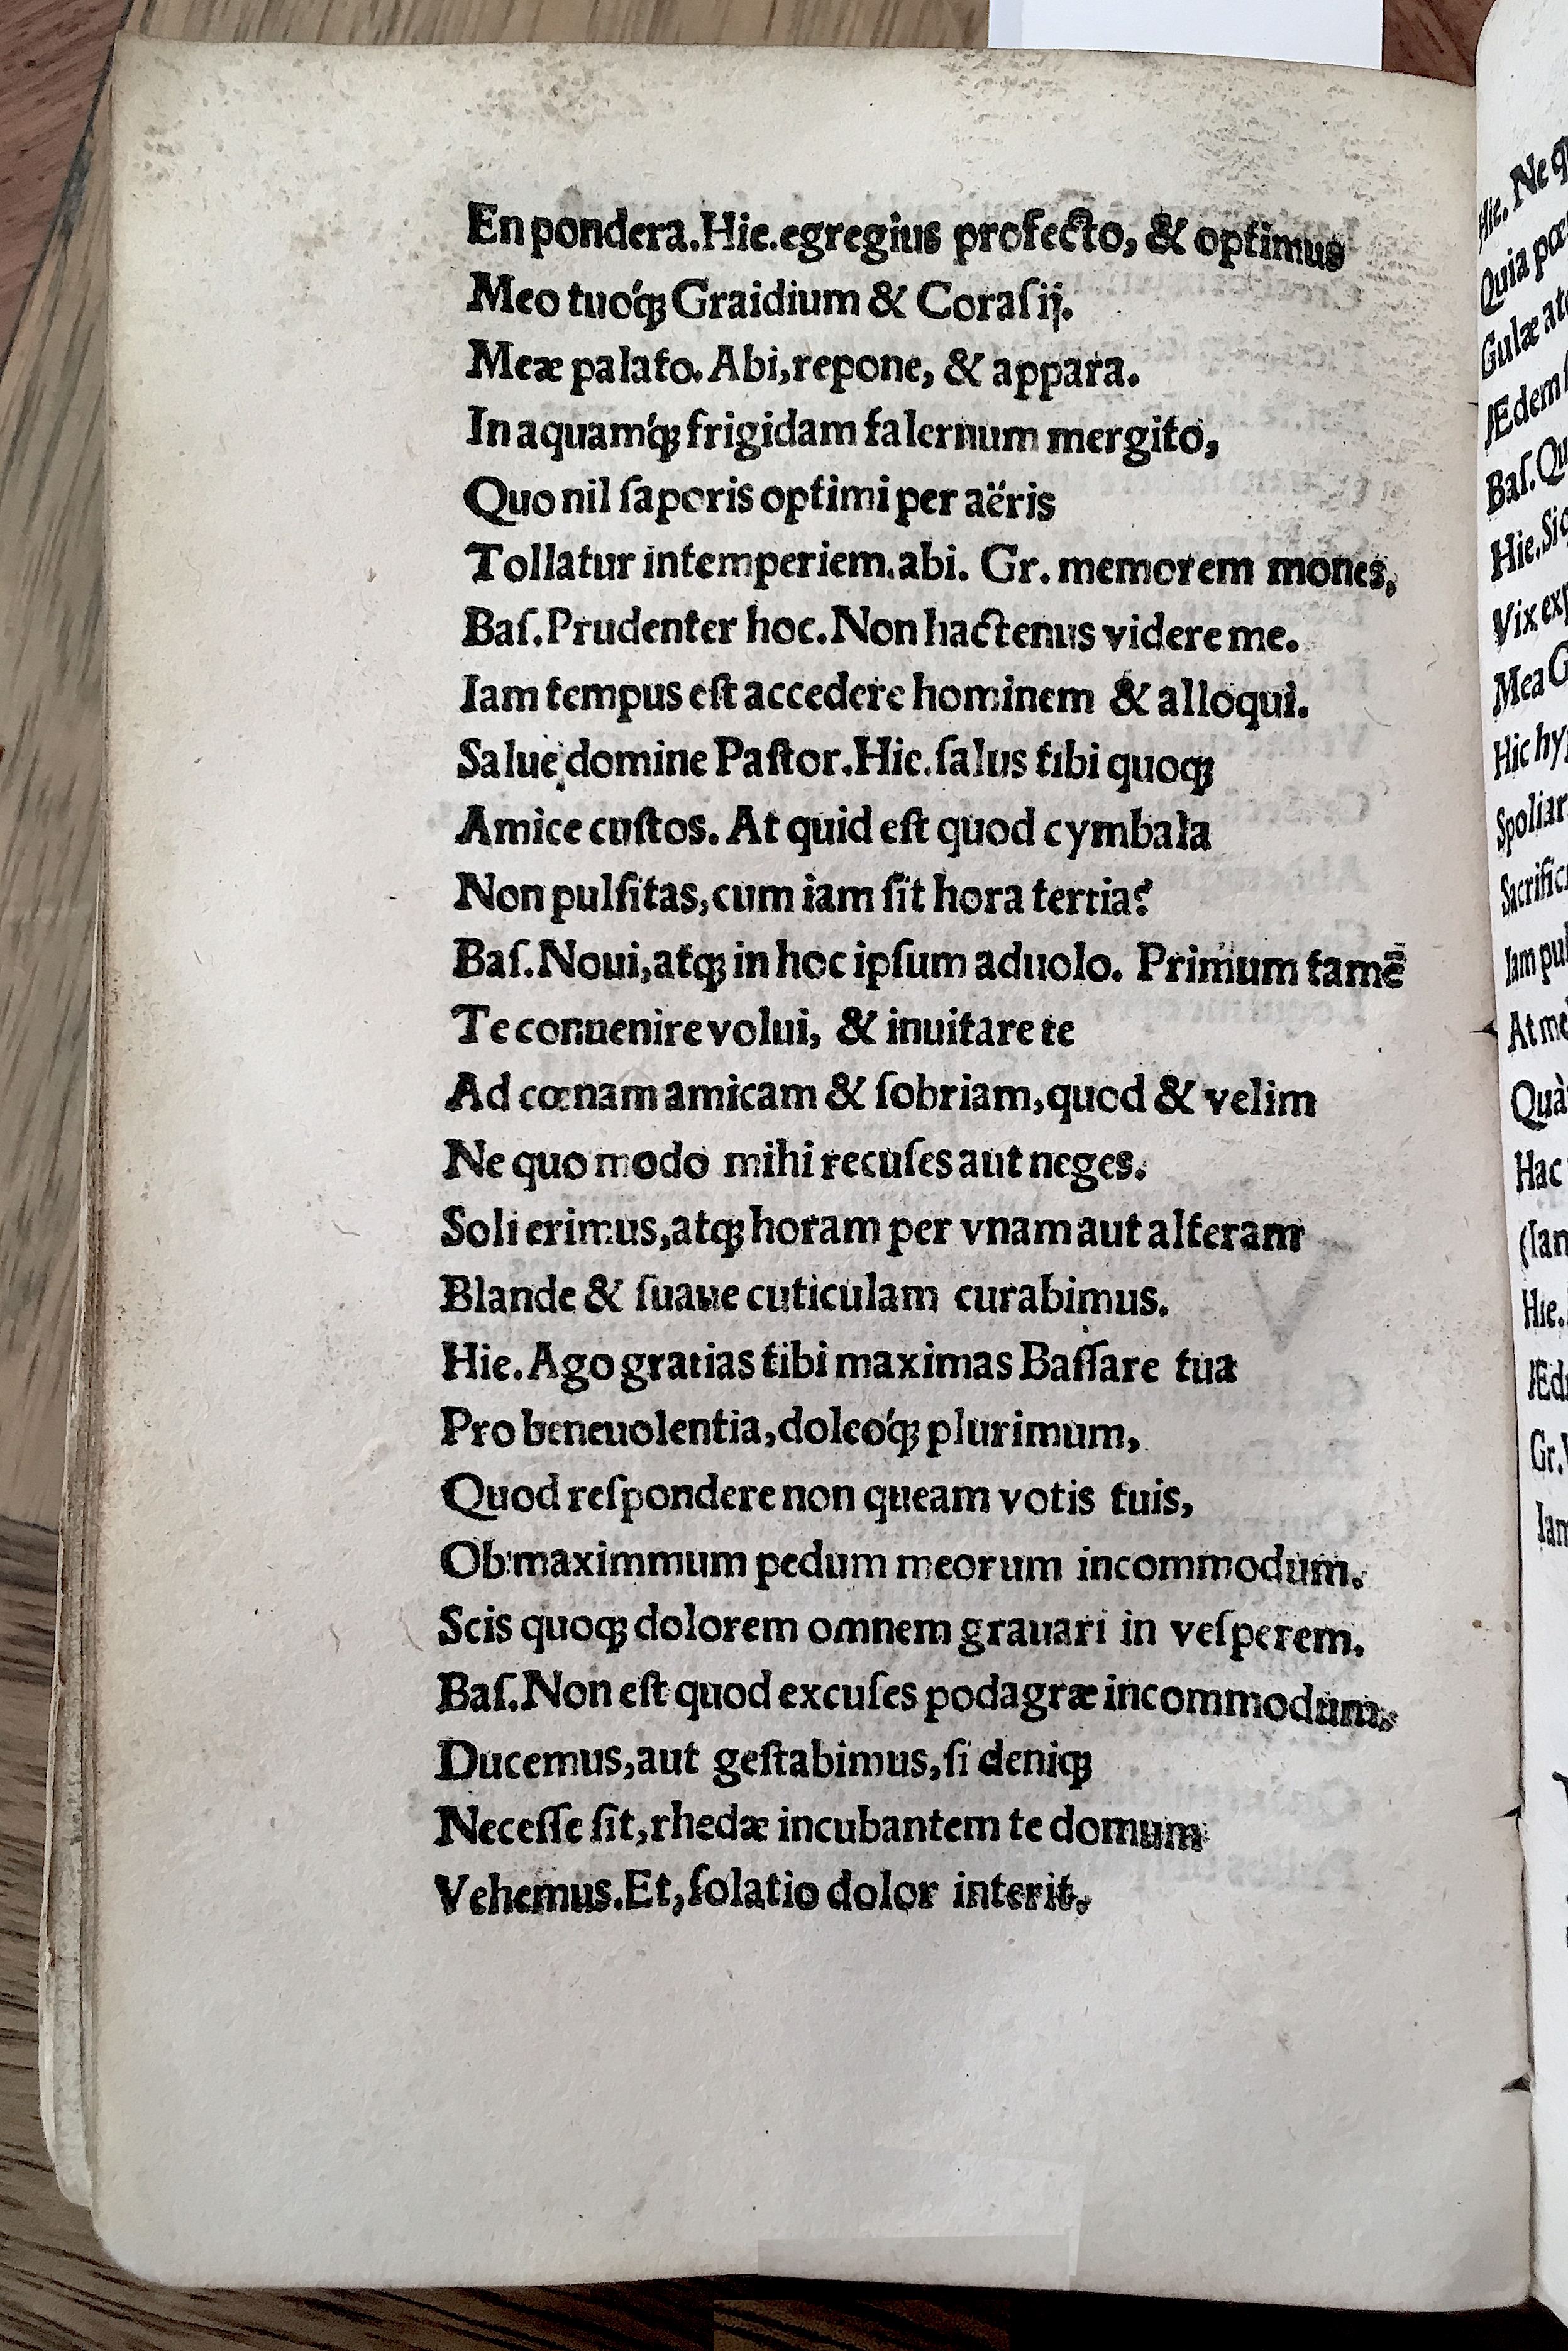 En pondera. Hie. egregius profecto, & optimus
Meo tuoq́ꝫ Graidium & Coraſij.
Meæ palato. Abi, repone, & appara.
In aquamq́ꝫ frigidam falernum mergito,
Quo nil ſaporis optimi per aëris
Tollatur intemperiem. abi. Gr. memorem mones,
Baſ. Prudenter hoc. Non hactenus videre me.
Iam tempus eſt accedere hominem & alloqui.
Salue domine Paſtor. Hie. ſalus tibi quoqꝫ
Amice cuſtos. At quid eſt quod cymbala
Non pulſitas, cum iam ſit hora tertia?
Baſ. Noui, atqꝫ in hoc ipſum aduolo. Primum tamē
Te conuenire volui, & inuitare te
Ad cœnam amicam & ſobriam, quod & velim
Ne quo modo mihi recuſes aut neges.
Soli erimus, atqꝫ horam per vnam aut alteram
Blande & ſuaue cuticulam curabimus.
Hie. Ago gratias tibi maximas Baſſare tua
Pro beneuolentia, doleoq́ꝫ plurimum,
Quod reſpondere non queam votis tuis,
Ob maximmum pedum meorum incommodum.
Scis quoqꝫ dolorem omnem grauari in veſperem.
Baſ. Non eſt quod excuſes podagræ incommodum.
Ducemus, aut geſtabimus, ſi deniqꝫ
Neceſſe ſit, rhedæ incubantem te domum
Vehemus. Et, ſolatio dolor interit.
Hie. Ne
Quia
Gulæ
Ædem
Baſ.
Hie.
Vix
Mea
Hic
Iam
At
Quà
Hac
Hie.
Gr.